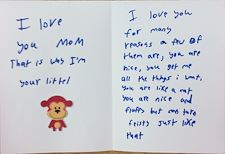 I love
you MOM
That is way I'm
your littel
I love you
for many
reasons a few of
them are, you are
nice, you get me
all the things i want,
you are like a cat
you are nice and
fluffy but can take
just like
that